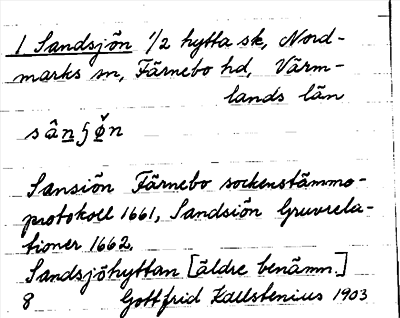 1. Sandsjön 1/2 hytta sk, Nord-
marks sn, Färnebo hd, Värm-
lands län
sânʂø̌n
Sansiön Färnebo sockenstämmo-
protokoll 1661, Sandsiön Gruvrela-
tioner 1662.
Sandsjöhyttan [äldre benämn.]
8 Gottfrid Kallstenius 1903